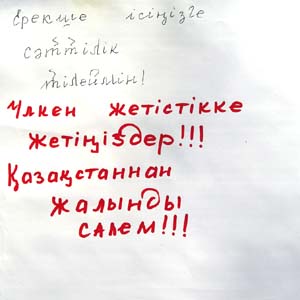 Ерекше ісіңізге
сәттілік
тілеймін!
Үлкен жетістікке
жетіңіздер!!!
Қазақстаннан
жалынды
сәлем!!!